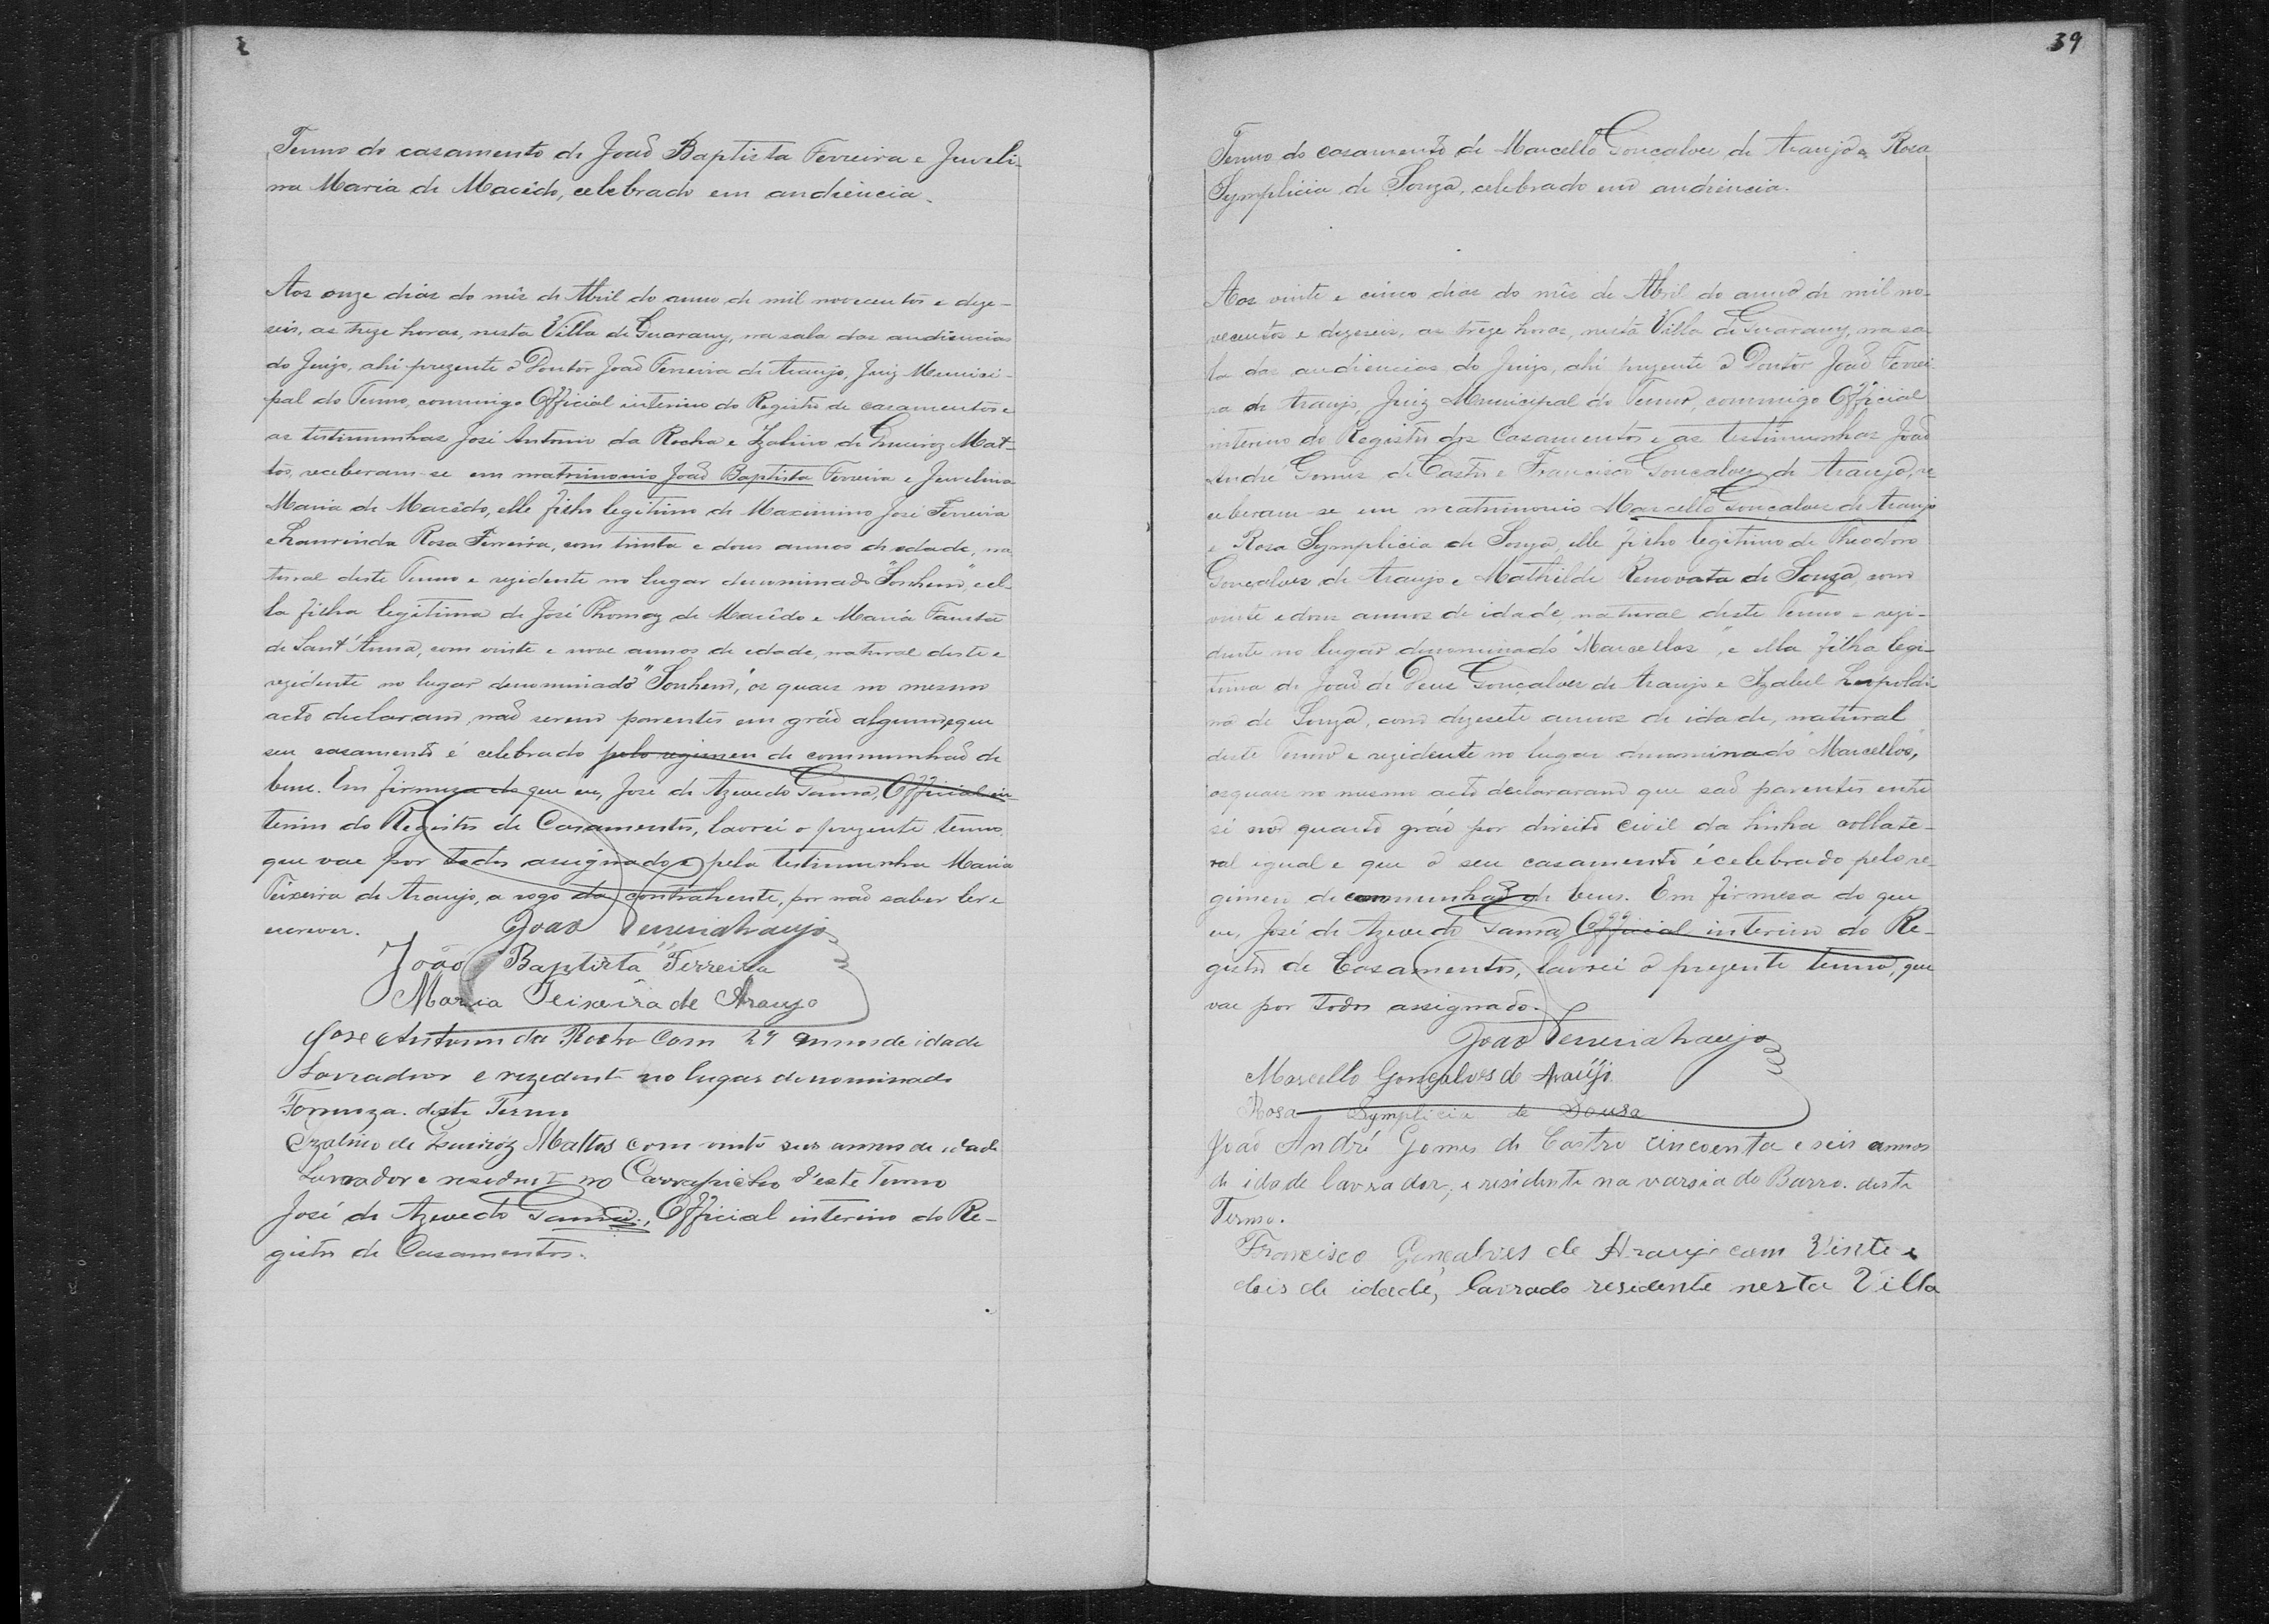 Termo do casamento de João Baptista Ferreira e Juveli-
na Maria de Macêdo, celebrado em audiencia.
Aos onze dias do mês de Abril do anno de mil novecentos e deze-
seis, as treze horas, nesta Villa de Guarany, na sala das audiencias
do Juizo, ahi prezente o Doutor João Ferreira de Araujo, Juiz Munici-
pal do Termo, commigo Official interino do Registro de casamentos e
as testimunhas José Antonio da Rocha e Izalino de Queiroz Mat-
tos, receberam-se em matrimonio João Baptista Ferreira e Juvelina
Maria de Macêdo, elle filho legitimo de Maximino José Ferreira
e Laurinda Rosa Ferreira, com trinta e dous annos de edade, na
tural deste Termo e rezidente no lugar denominado "Sonhem", e el-
la filha legitima de José Thomaz de Macêdo e Maria Fausta
de Sant'Anna, com vinte e nove annos de edade, natural deste e
rezidente no lugar denominado "Sonhem", os quaes no mesmo
acto declaram não serem parentes em gráo algum, e que
seu casamento é celebrado pelo regimen de communhão de
bens. Em firmeza do que eu, José de Azevedo Gama, Official in-
terino do Registro de Casamentos, lavrei o prezente termo
que vae por todos assignado e pela testimunha Maria
Teixeira de Araujo, a rogo da contrahente, por não saber ler e
escrever.
João Ferreira Araujo
João Baptista Ferreira
Maria Teixeira de Araujo
José Antonio da Rocha com 29 annos de idade
Lavrador e rezedent no lugar denominado
Formoza. deste Termo
Izalino de Queiroz Mattos com vinte seis annos de idade
Lavrador e residente no Carrapicho d'este Termo
José de Azevedo Gama, Official interino do Re-
gistro de Casamentos.
39
Termo do casamento de Marcello Gonçalves de Araujo e Rosa
Symplicia de Souza, celebrado em audiencia.
Aos vinte e cinco dias do mês de Abril do anno de mil no-
vecentos e dezeseis, as treze horas, nesta Villa de Guarany, na sa
la das audiencias do Juizo, ahi prezente o Doutor João Ferrei-
ra de Araujo, Juiz Municipal do Termo, commigo Official
interino do Registro dos Casamentos e as testimunhas João
André Gomes de Castro e Francisco Gonçalves de Araujo, re
ceberam-se em matrimonio Marcello Gonçalves de Araujo
e Rosa Symplicia de Souza, elle filho legitimo de Theodoro
Gonçalves de Araujo e Mathilde Renovata de Souza, com
vinte e dous annos de idade, natural deste Termo e rezi-
dente no lugar denominado "Marcellos", e ella filha legi-
tima de João de Deus Gonçalves de Araujo e Izabel Leopoldi
na de Souza, com dezesete annos de idade, natural
deste Termo e rezidente no lugar denominado "Marcellos",
os quaes no mesmo acto declararam que são parentes entre
si no quarto gráo por direito civil da linha collate-
ral egual e que o seu casamento é celebrado pelo re-
gimen de communhão de bens. Em firmesa do que
eu, José de Azevedo Gama, Official interino do Re-
gistro de Casamentos, lavrei o prezente termo, que
vae por todos assignado.
João Ferreira Araujo
Marcello Gonçalves de Araüjo
Rosa Symplicia de Sousa
João André Gomes de Castro cincoenta e seis annos
de idade lavrador, e residente na varsia do Barro. deste
Termo.
Francisco Gonçalves de Araujo com Vinte e
dois de idade, lavrado residente nesta Villa